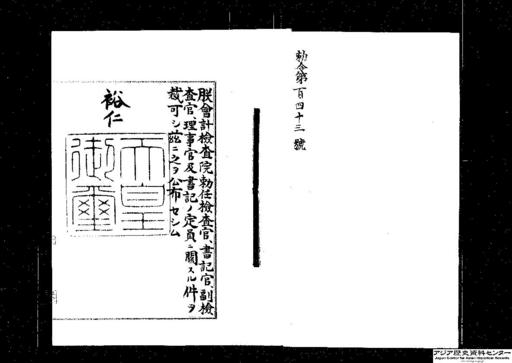 勅令第百四十三號
朕會計檢査院勅任檢査官、書記官、副檢
査官、理事官及書記ノ定員ニ關スル件ヲ
裁可シ玆ニ之ヲ公布セシム
裕仁
天皇
御璽
アジア歴史資料センター
Japan Center for Asian Historical Records